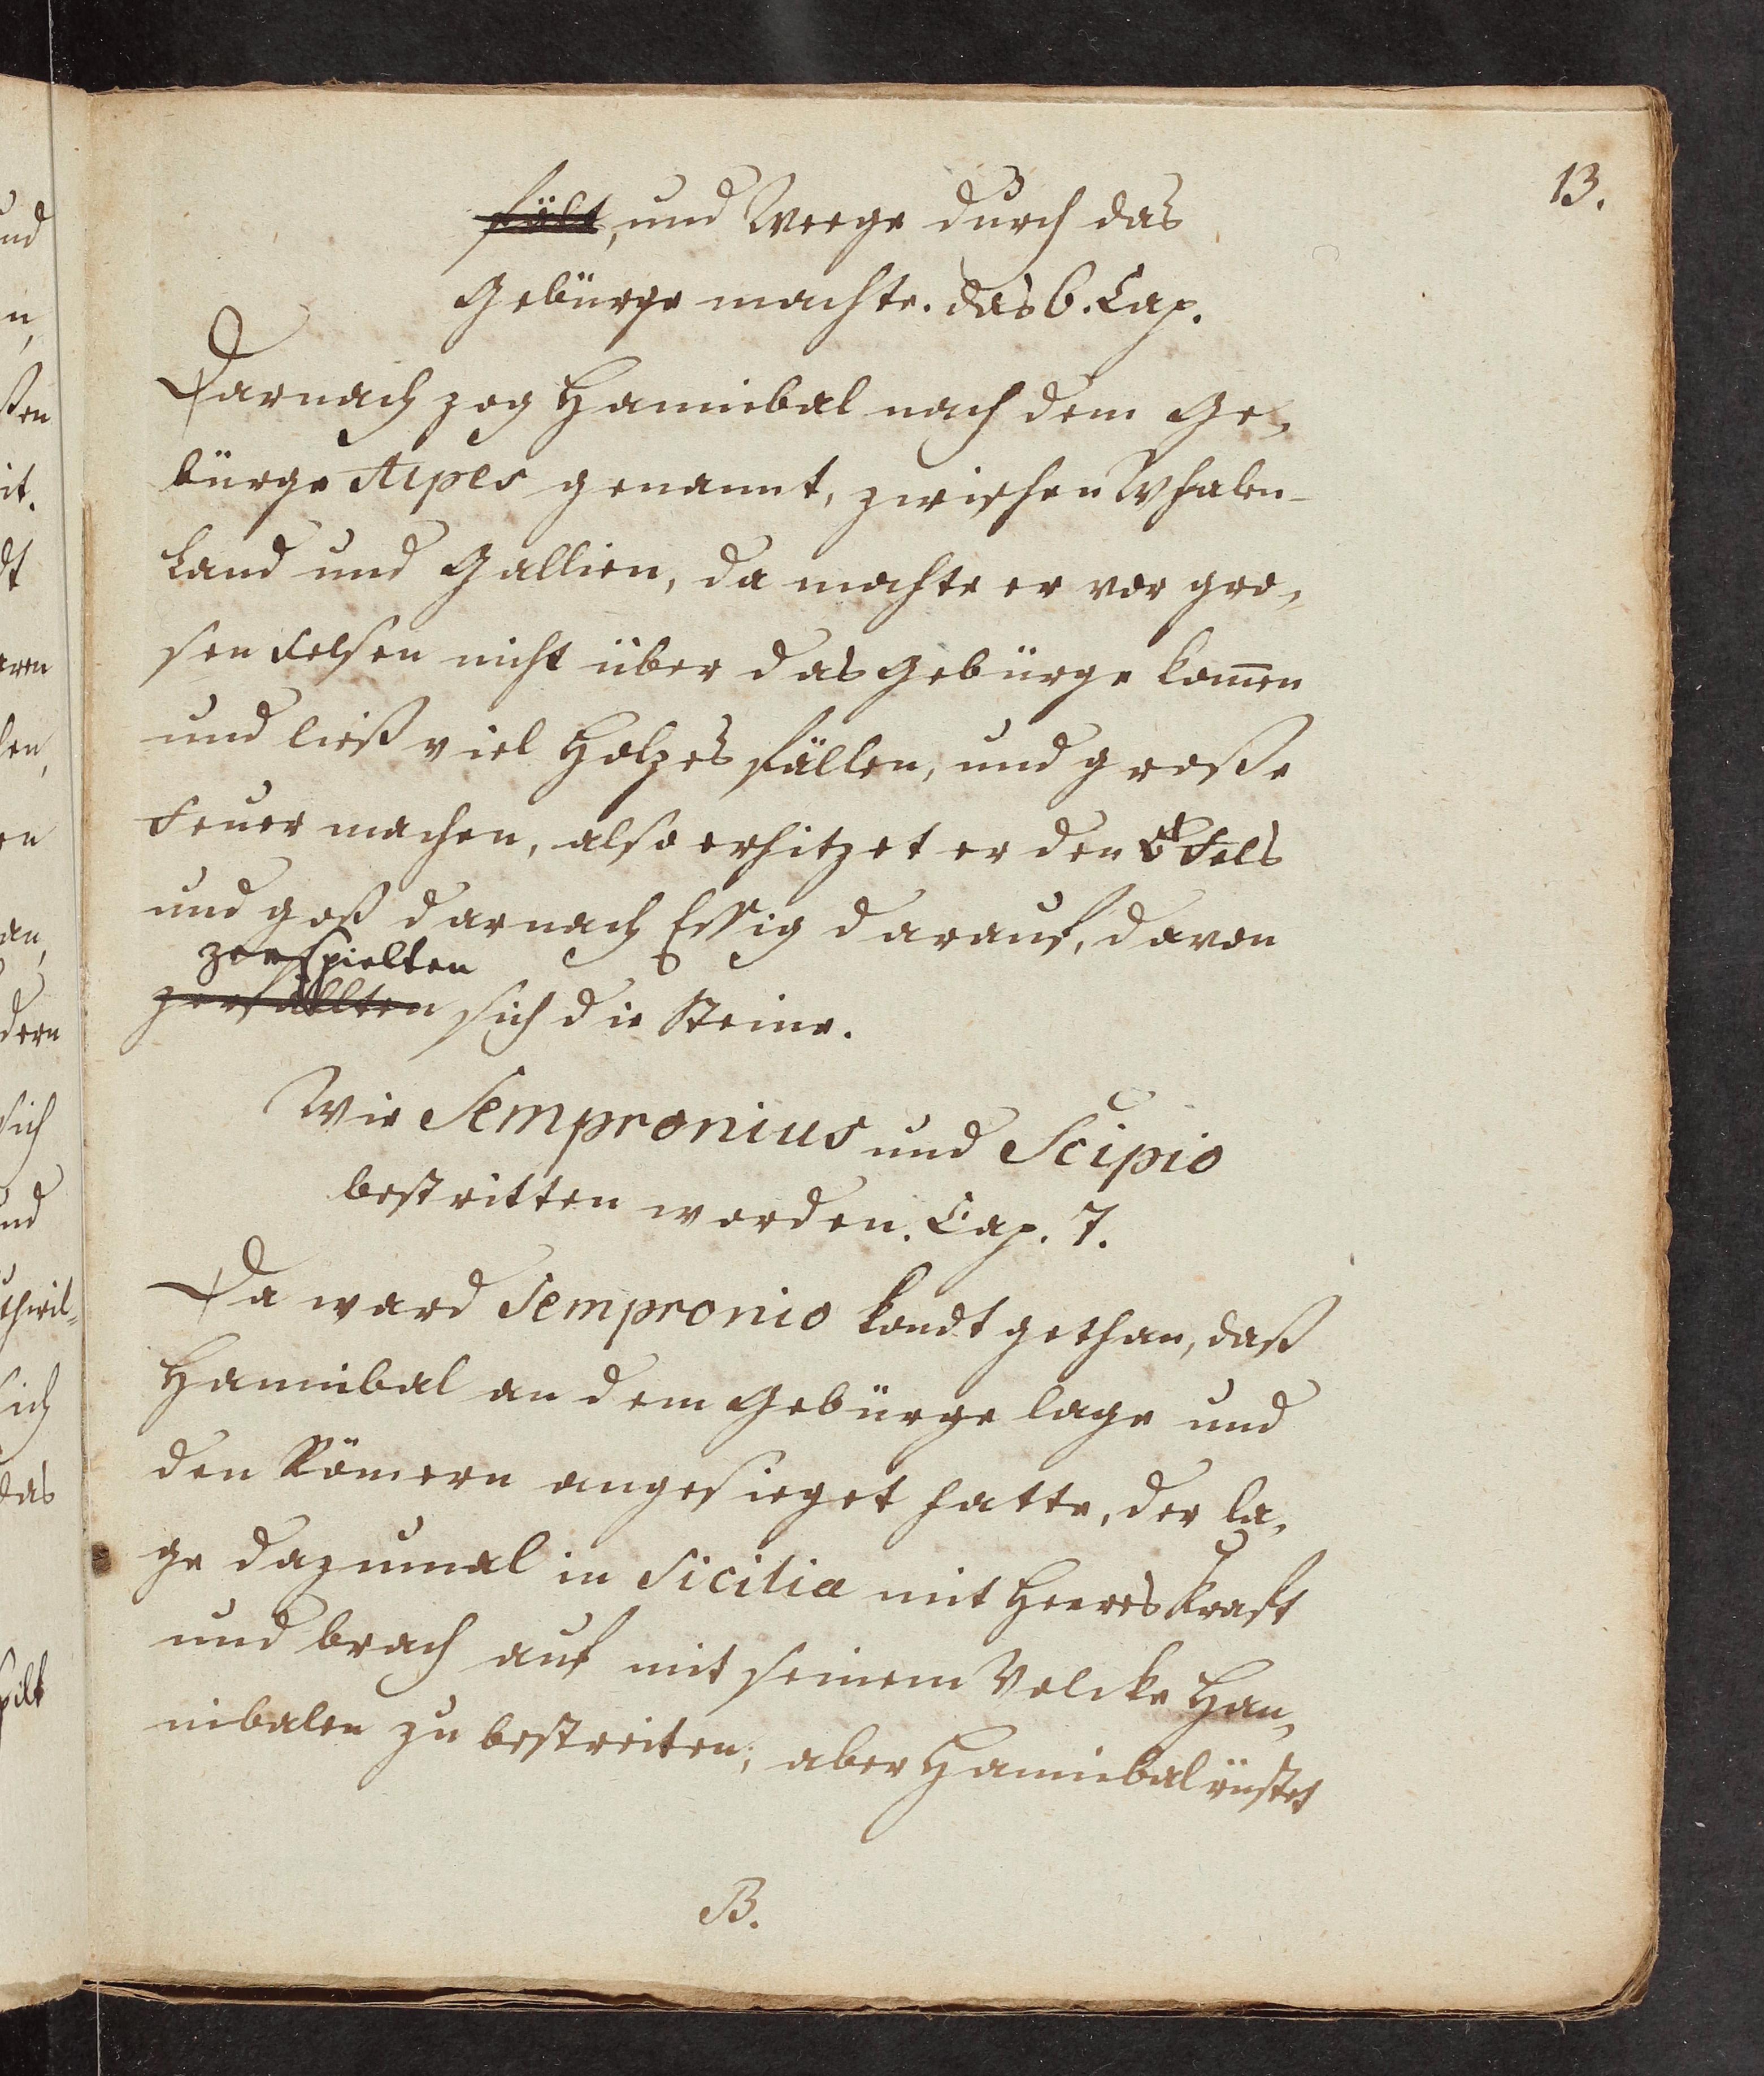 13.
fält, und Weege durch das
Gebürge machte. das 6. Cap.
Darnach zog Hannibal nach dem Ge-
bürge Alpes genannt, zwischen Whalen-
Land und Gallien, da mochte er vor gro-
sen Felsen nicht über das Gebürge kom̄en
und ließ viel Holzes fällen, und große
Feuer machen, also erhitzet er den Fels
und goß darnach Eßig darauf, davon
zerspielten
zerfällten sich die Steine.
Wie Sempronius und Scipio
bestritten worden. Cap. 7.
Da ward Sempronio kondt gethan, daß
Hannibal an dem Gebürge lage und
den Römern angesieget hatte, der la-
ge dazumal in Sicilia mit Heeres Kraft
und brach auf mit seinem Volcke Han-
nibalen zu bestreiten, aber Hannibal rüstet
B.